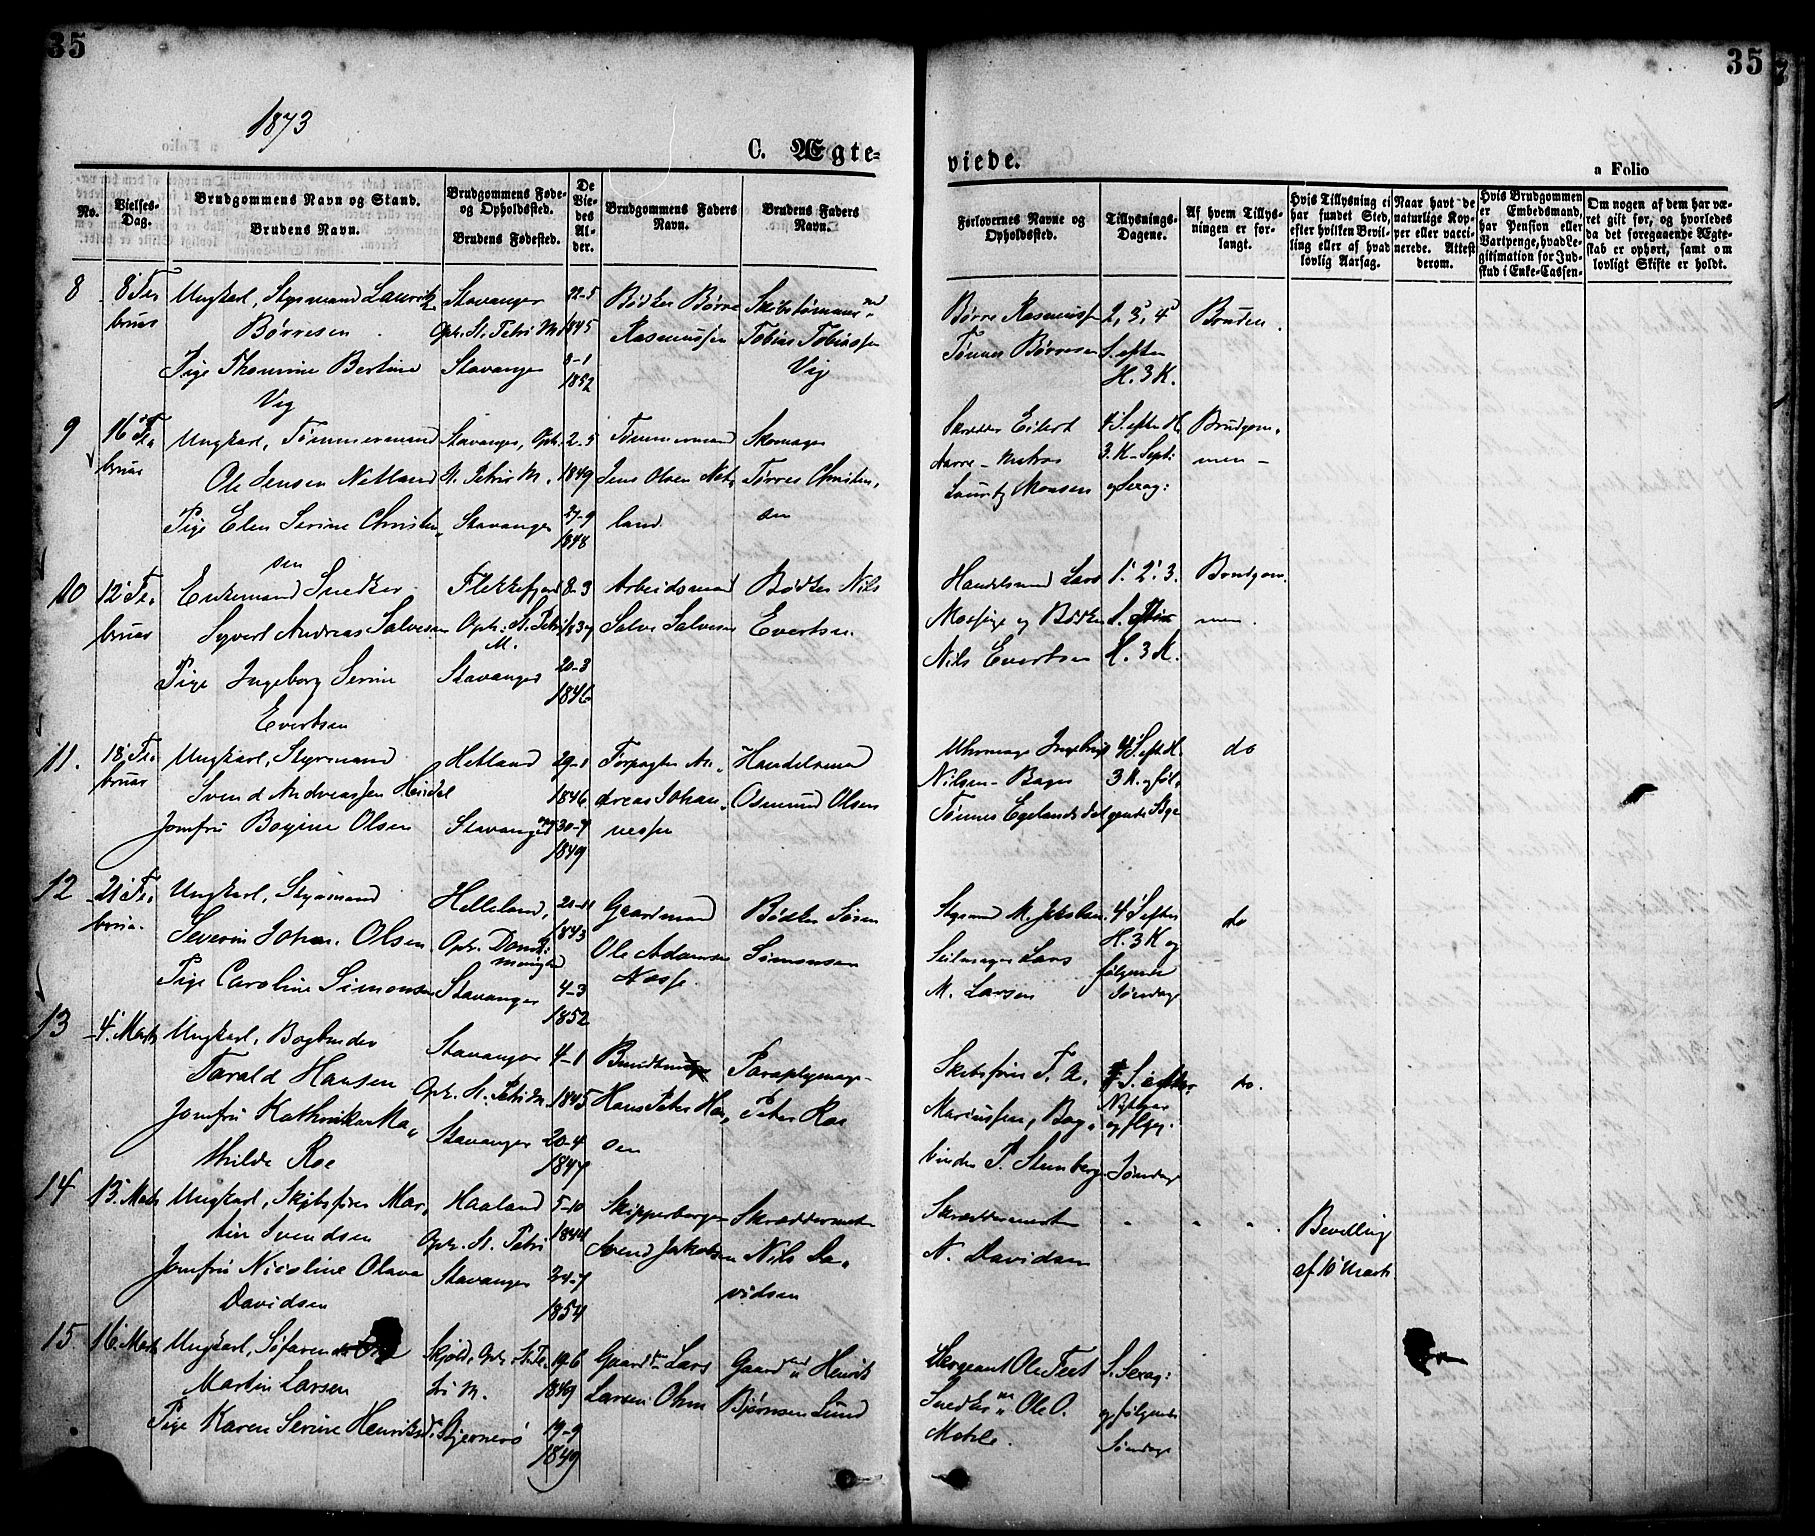 35
35
1873
C. Ægte-
viede.
a Folio
No.
Vielses-
Dag.
Brudgommens Navn og Stand.
Brudens Navn.
Brudgommens Føde-
og Opholdssted.
Brudens Fødested.
De
Vie-
des
Al-
der.
Brudgommens Faders
Navn.
Brudens Faders
Navn.
Forlovernes Navne og
Opholdssted.
Tillysnings-
Dagene.
Af hvem Tillys-
ningen er for-
langt.
Hvis Tillysning ei
har fundet Sted,
efter hvilken Bevil-
ling eller af hvad
lovlig Aarsag.
Naar havt de
naturlige Kop-
per eller vacci-
nerede. Attest
derom.
Hvis Brudgommen
er Embedsmand,
har Pension eller
Vartpenge, hvad Le-
gitimation for Ind-
skud i Enke-Cassen.
Om nogen af dem har væ-
ret gift før, og hvorledes
da det foregaaende Ægte-
skab er ophørt, samt om
lovligt Skifte er holdt.
8
8 Fe-
bruar
Ungkarl, Styrmand Lauritz
Børresen
Pige Thomine Bertine
Vig
Stavanger
Oph. St. Petri M.
Stavanger
22-5
1845
8-1
1852
Bødker Børre
Rasmussen
Skibstømmermd
Tobias Tobiassen
Vig
Børre Rasmussen
Tønnes Børresen
2, 3, 4
S. efter
H. 3 K.
Bruden.
9
16 Fe-
bruar
Ungkarl, Tømmermand
Ole Jensen Netland
Pige Elen Serine Christen-
sen
Stavanger, Oph.
St. Petri M.
Stavanger
2-5
1849
27-9
1848
Tømmermand
Jens Olsen Net-
land
Skomager
Tørres Christen-
sen
Skrædder Eilert
Aarre - Matros
Lauritz Monsen
4 S. efter H.
3. K - Sept:
og Sexag:
Brudgom-
men -
10
12 Fe-
bruar
Enkemand Snedker
Syvert Andreas Salvesen
Pige Ingeborg Serine
Evertsen
Flekkefjord
Oph: St. Petri
M.
Stavanger
8-3
1837
20-3
1846
Arbeidsmand
Salve Salvesen
Bødker Nils
Evertsen
Handelsmand Lars
Mossige og Bødker
Nils Evertsen
1. 2. 3.
S. efter
H. 3 K.
Brudgom-
men.
11.
18 Fe-
bruar
Ungkarl, Styrmand
Svend Andreassen Heidal
Jomfru Bogine Olsen
Hetland
Stavanger
29-1
1846
30-7
1849
Forpagter An-
dreas Johan-
nessen
Handelsmand
Osmund Olsen
Uhrmager Ingebrigt
Nilsen - Bager
Tønnes Egelandsdal
4 S. eft. H.
3 K. og føl-
gende
do
12
21 Fe-
bruar
Ungkarl, Styrmand
Severin Johan Olsen
Pige Caroline Simonsen
Helleland,
Oph. Domk:
menighed
Stavanger
20-11
1843
4-3
1852
Gaardmand
Ole Adamsen
Nesse
Bødker Søren
Simonsen
Styrmd M. Jakobsen
Seilmager Lars
M. Larsen
4 S. efter
H. 3 K og
følgende
Søndage
do
13
4 Marts
Ungkarl, Bogbinder
Tarald Hansen
Jomfru Kathinka Ma-
thilde Roe
Stavanger
Oph. St. Petri M.
Stavanger
4-1
1845
20-4
1847
Bundtmager
Hans Peter Han-
sen
Paraplymager
Peter Roe
Skibsfører T. A.
Mariussen, Bog-
binder P. Stenberg
S. efter
Nytaar
og følg:
Søndage
do.
14
13 Marts
Ungkarl, Skibsfører Mar-
tin Svendsen
Jomfru Nicoline Olava
Davidsen
Haaland
Oph. St. Petri
Stavanger
5-10
1844
24-7
1854
Skipperborger
Svend Jakobsen
Skræddermester
Nils Da-
vidsen
Skræddermester
N. Davidsen
" " "
Bevilling
af 10 Marts
15
16 Marts
Ungkarl, Søfarende
Martin Larsen
Pige Karen Serine Henriksd.
Skjold, Oph. St. Pe-
tri M.
Stjernerø
19-6
1849
19-9
1849
Gaardm Lars
Larsen Ohm
Gaardmd Henrik
Bjørnsen Lund
Sergeant Ole Teet
Snedker Ole O.
S. Sexag:
og følgende
Søndage